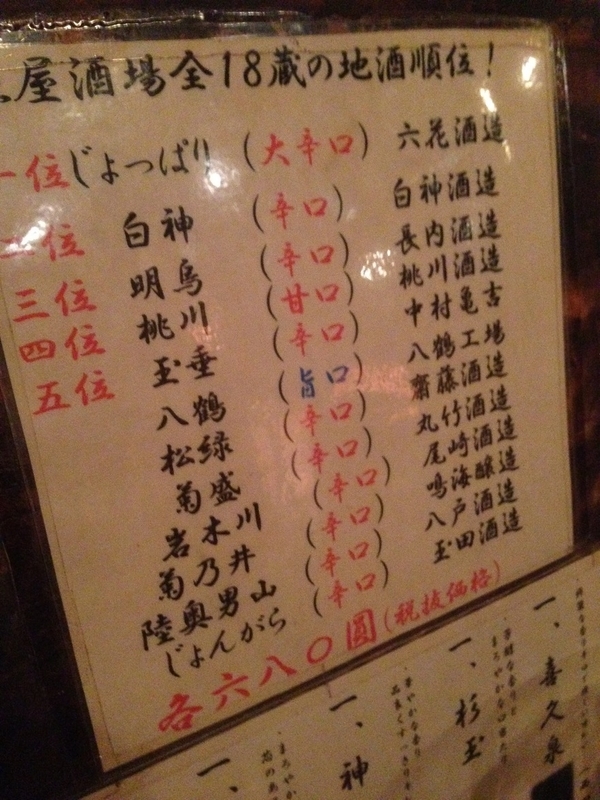 屋酒場全18蔵の地酒順位!
一位 じょっぱり (大辛口) 六花酒造
二位 白神 (辛口) 白神酒造
三位 明烏 (辛口) 長内酒造
四位 桃川 (甘口) 桃川酒造
五位 玉垂 (辛口) 中村亀吉
八鶴 (旨口) 八鶴工場
松緑 (辛口) 齋藤酒造
菊盛 (辛口) 丸竹酒造
岩木川 (辛口) 尾崎酒造
菊乃井 (辛口) 鳴海醸造
陸奥男山 (辛口) 八戸酒造
じょんがら (辛口) 玉田酒造
各六八〇圓(税抜価格)
一、喜久泉
一、杉玉
芳醇な香りと
まろやかな口当たり
一、神
華やかな香り
品良くすっきりキ
一、
まろやか